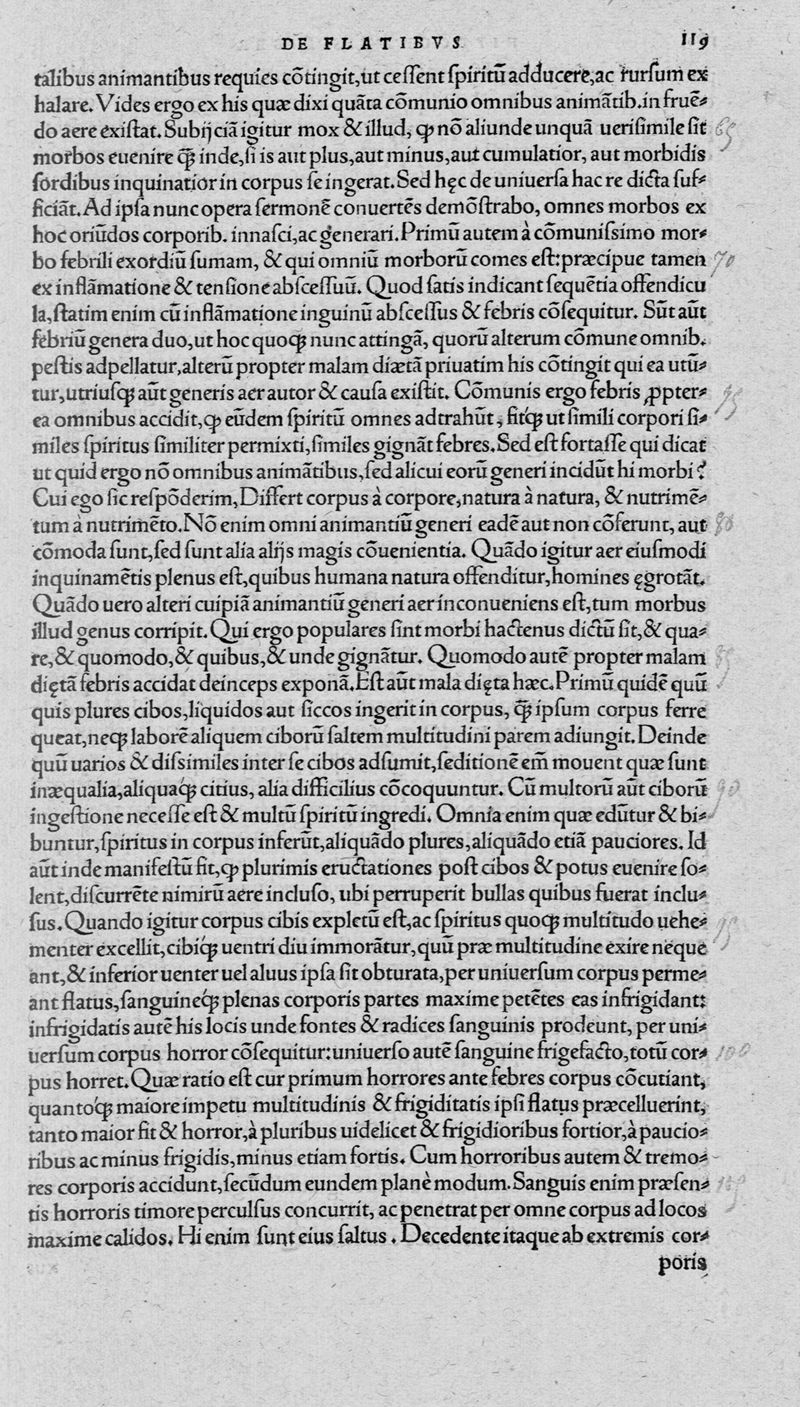 DE FLATIBVS 119
talibus animantibus requies cõtingit,ut ceſſent ſpiritũ adducere,ac rurſum ex
halare. Vides ergo ex his quæ dixi quãta cõmunio omnibus animãtib.in fruẽ⸗
do aere exiſtat. Subijciã igitur mox & illud, ꝙ nõ aliunde unquã ueriſimile ſit
morbos euenire ꝙ̃ inde,ſi is aut plus,aut minus,aut cumulatior, aut morbidis
ſordibus inquinatior in corpus ſe ingerat. Sed hęc de uniuerſa hac re dicta ſuf⸗
ficiãt. Ad ipſa nunc opera ſermonẽ conuertẽs demõſtrabo, omnes morbos ex
hoc oriũdos corporib. innaſci,ac generari. Primũ autem à cõmuniſsimo mor⸗
bo febrili exordiũ ſumam, & qui omniũ morborũ comes eſt:præcipue tamen
ex inflãmatione & tenſione abſceſſuũ. Quod ſatis indicant ſequẽtia offendicu
la,ſtatim enim cũ inflãmatione inguinũ abſceſſus & febris cõſequitur. Sũt aũt
febriũ genera duo,ut hoc quoqꝫ nunc attingã, quorũ alterum cõmune omnib.
peſtis adpellatur,alterũ propter malam diætã priuatim his cõtingit qui ea utũ⸗
tur,utriuſqꝫ aũt generis aer autor & cauſa exiſtit. Cõmunis ergo febris ꝓpter⸗
ea omnibus accidit,ꝙ eũdem ſpiritũ omnes adtrahũt, fitqꝫ́ ut ſimili corpori ſi⸗
miles ſpiritus ſimiliter permixti,ſimiles gignãt febres. Sed eſt fortaſſe qui dicat
ut quid ergo nõ omnibus animãtibus,ſed alicui eorũ generi incidũt hi morbi?
Cui ego ſic reſpõderim,Differt corpus à corpore,natura à natura, & nutrimẽ⸗
tum à nutrimẽto. Nõ enim omni animantiũ generi eadẽ aut non cõferunt, aut
cõmoda ſunt,ſed ſunt alia alijs magis cõuenientia. Quãdo igitur aer eiuſmodi
inquinamẽtis plenus eſt,quibus humana natura offenditur,homines ęgrotãt.
Quãdo uero alteri cuipiã animantiũ generi aer inconueniens eſt,tum morbus
illud genus corripit. Qui ergo populares ſint morbi hactenus dictũ ſit,& qua⸗
re,& quomodo,& quibus,& unde gignãtur. Quomodo autẽ propter malam
diętã febris accidat deinceps exponã. Eſt aũt mala dięta hæc. Primũ quidẽ quũ
quis plures cibos,liquidos aut ſiccos ingerit in corpus, ꝙ̃ ipſum corpus ferre
queat,neqꝫ laborẽ aliquem ciborũ ſaltem multitudini parem adiungit. Deinde
quũ uarios & diſsimiles inter ſe cibos adſumit,ſeditionẽ em̃ mouent quæ ſunt
inæqualia,aliquaqꝫ́ citius, alia difficilius cõcoquuntur. Cũ multorũ aũt ciborũ
ingeſtione neceſſe eſt & multũ ſpiritũ ingredi. Omnia enim quæ edũtur & bi⸗
buntur,ſpiritus in corpus inferũt,aliquãdo plures,aliquãdo etiã pauciores. Id
aũt inde manifeſtũ fit,ꝙ plurimis eructationes poſt cibos & potus euenire ſo⸗
lent,diſcurrẽte nimirũ aere incluſo, ubi perruperit bullas quibus fuerat inclu⸗
ſus. Quando igitur corpus cibis expletũ eſt,ac ſpiritus quoqꝫ multitudo uehe⸗
menter excellit,cibiqꝫ́ uentri diu immorãtur,quũ præ multitudine exire neque
ant,& inferior uenter uel aluus ipſa ſit obturata,per uniuerſum corpus perme⸗
ant flatus,ſanguineqꝫ́ plenas corporis partes maxime petẽtes eas infrigidant:
infrigidatis autẽ his locis unde fontes & radices ſanguinis prodeunt, per uni⸗
uerſum corpus horror cõſequitur:uniuerſo autẽ ſanguine frigefacto,totũ cor⸗
pus horret. Quæ ratio eſt cur primum horrores ante febres corpus cõcutiant,
quantoqꝫ́ maiore impetu multitudinis & frigiditatis ipſi flatus præcelluerint,
tanto maior fit & horror,à pluribus uidelicet & frigidioribus fortior,à paucio⸗
ribus ac minus frigidis,minus etiam fortis. Cum horroribus autem & tremo⸗
res corporis accidunt,ſecũdum eundem planè modum. Sanguis enim præſen⸗
tis horroris timore perculſus concurrit, ac penetrat per omne corpus ad locos
maxime calidos. Hi enim ſunt eius ſaltus. Decedente itaque ab extremis cor⸗
poris